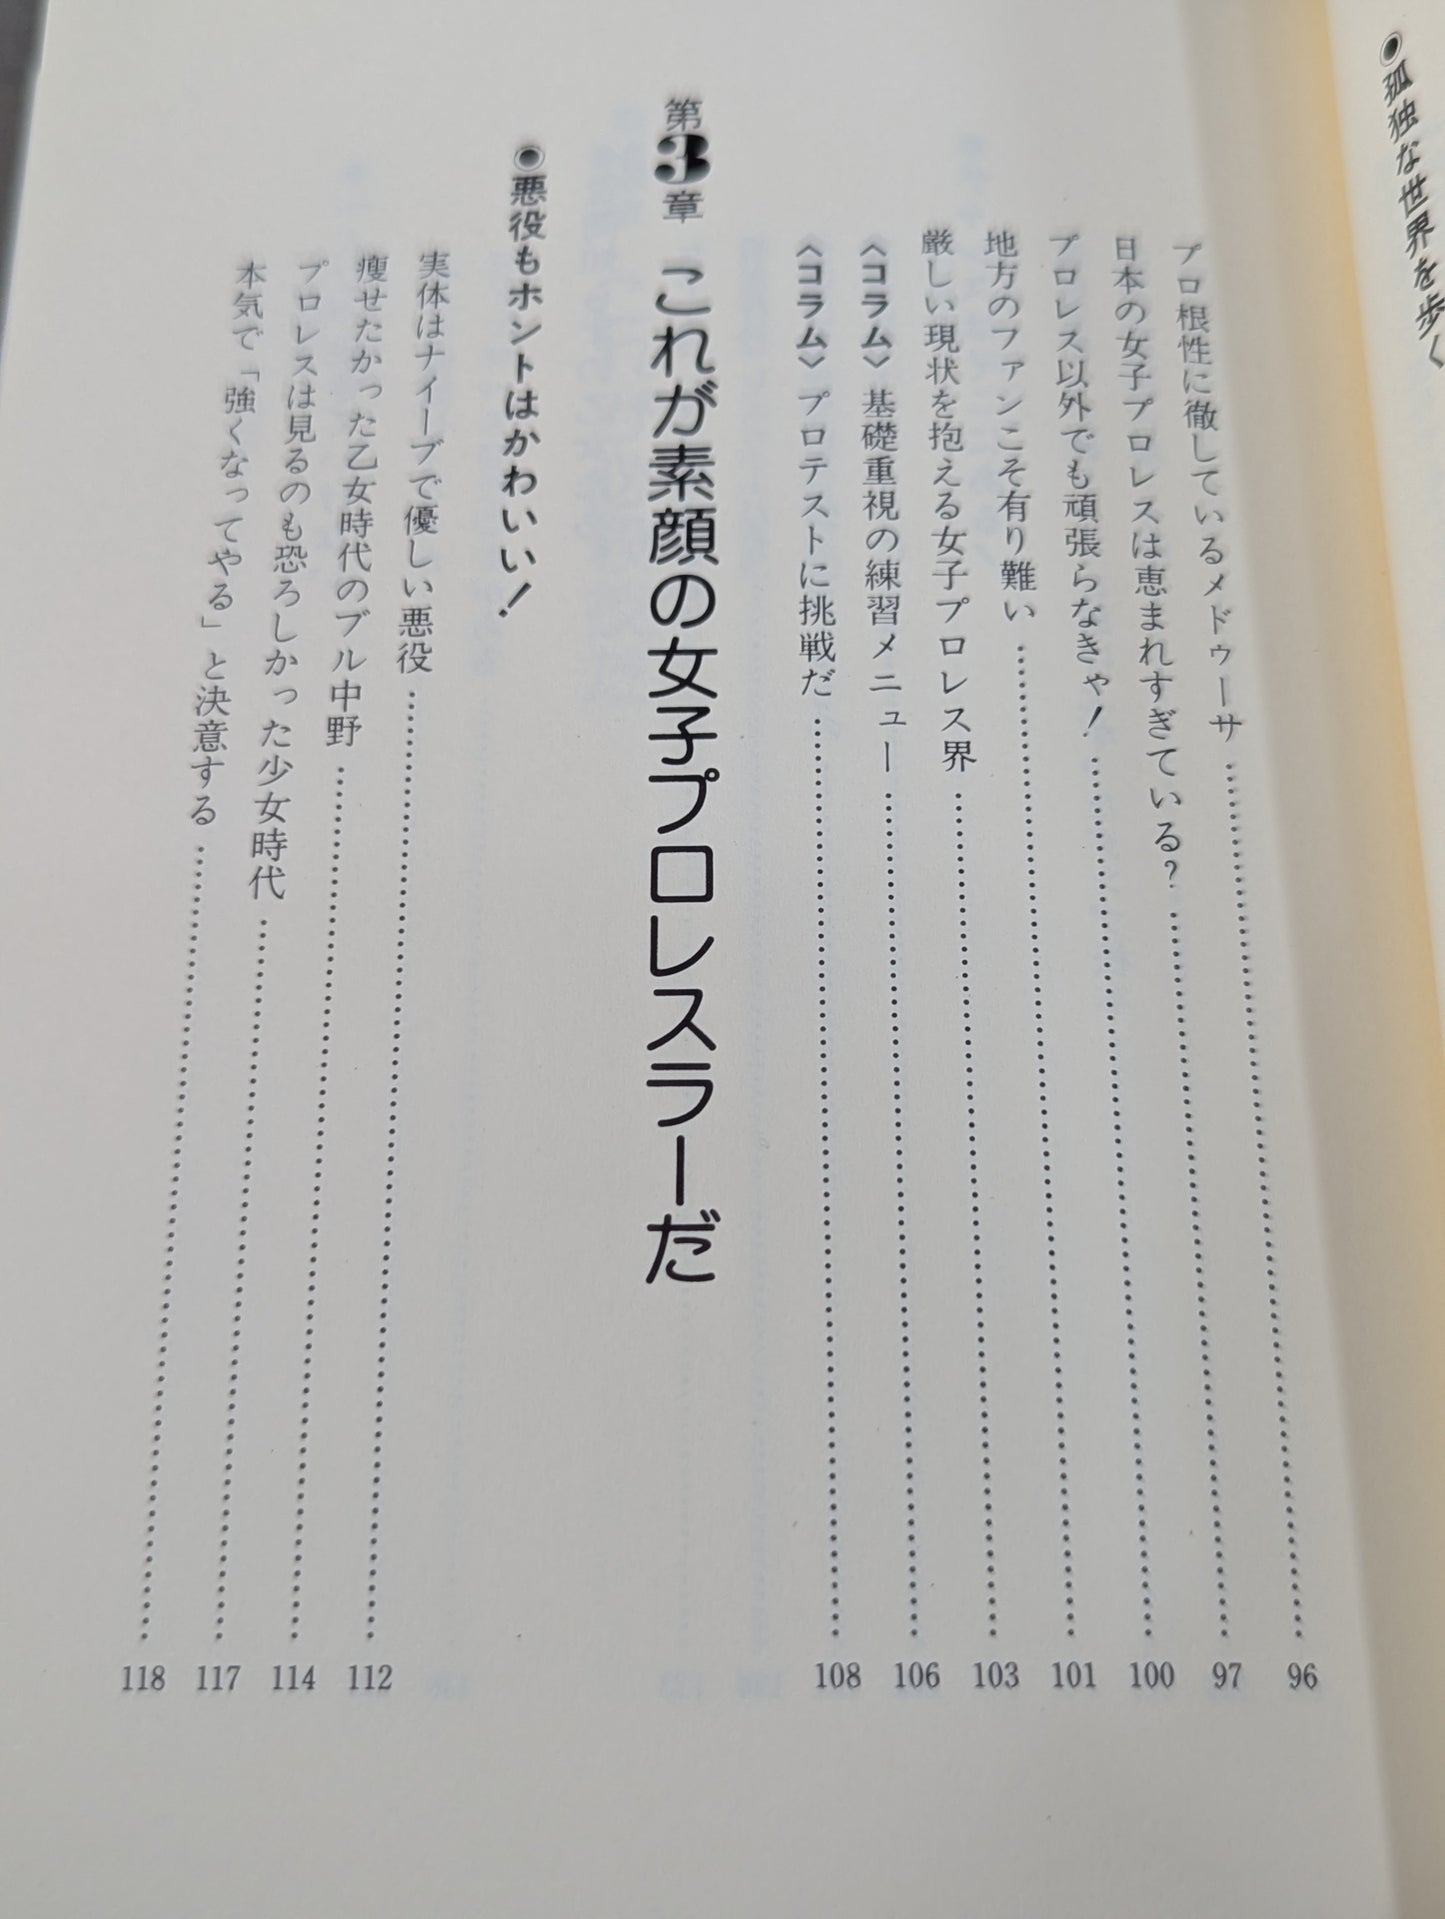 ◉孤独な世界を歩く
プロ根性に徹しているメドゥーサ……96
日本の女子プロレスは恵まれすぎている?……97
プロレス以外でも頑張らなきゃ!……100
地方のファンこそ有り難い……101
厳しい現状を抱える女子プロレス界……103
〈コラム〉基礎重視の練習メニュー……106
〈コラム〉プロテストに挑戦だ……108
第3章 これが素顔の女子プロレスラーだ
◉悪役もホントはかわいい!
実体はナイーブで優しい悪役……112
痩せたかった乙女時代のブル中野……114
プロレスは見るのも恐ろしかった少女時代……117
本気で「強くなってやる」と決意する……118